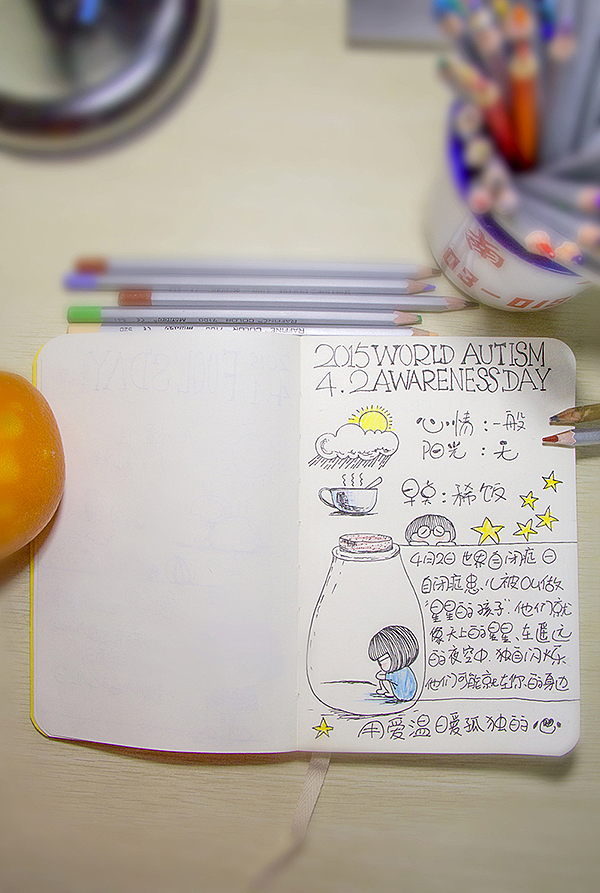 2015 WORLD AUTISM
4.2 AWARENESS DAY
心情:一般
阳光:无
早:稀饭
4月2日世界自闭症日
自闭症患儿被叫做
"星星的孩子".他们就
像天上的星星、在遥远
的夜空中.独自闪烁.
他们可能就在你的身边
用爱温暖孤独的心